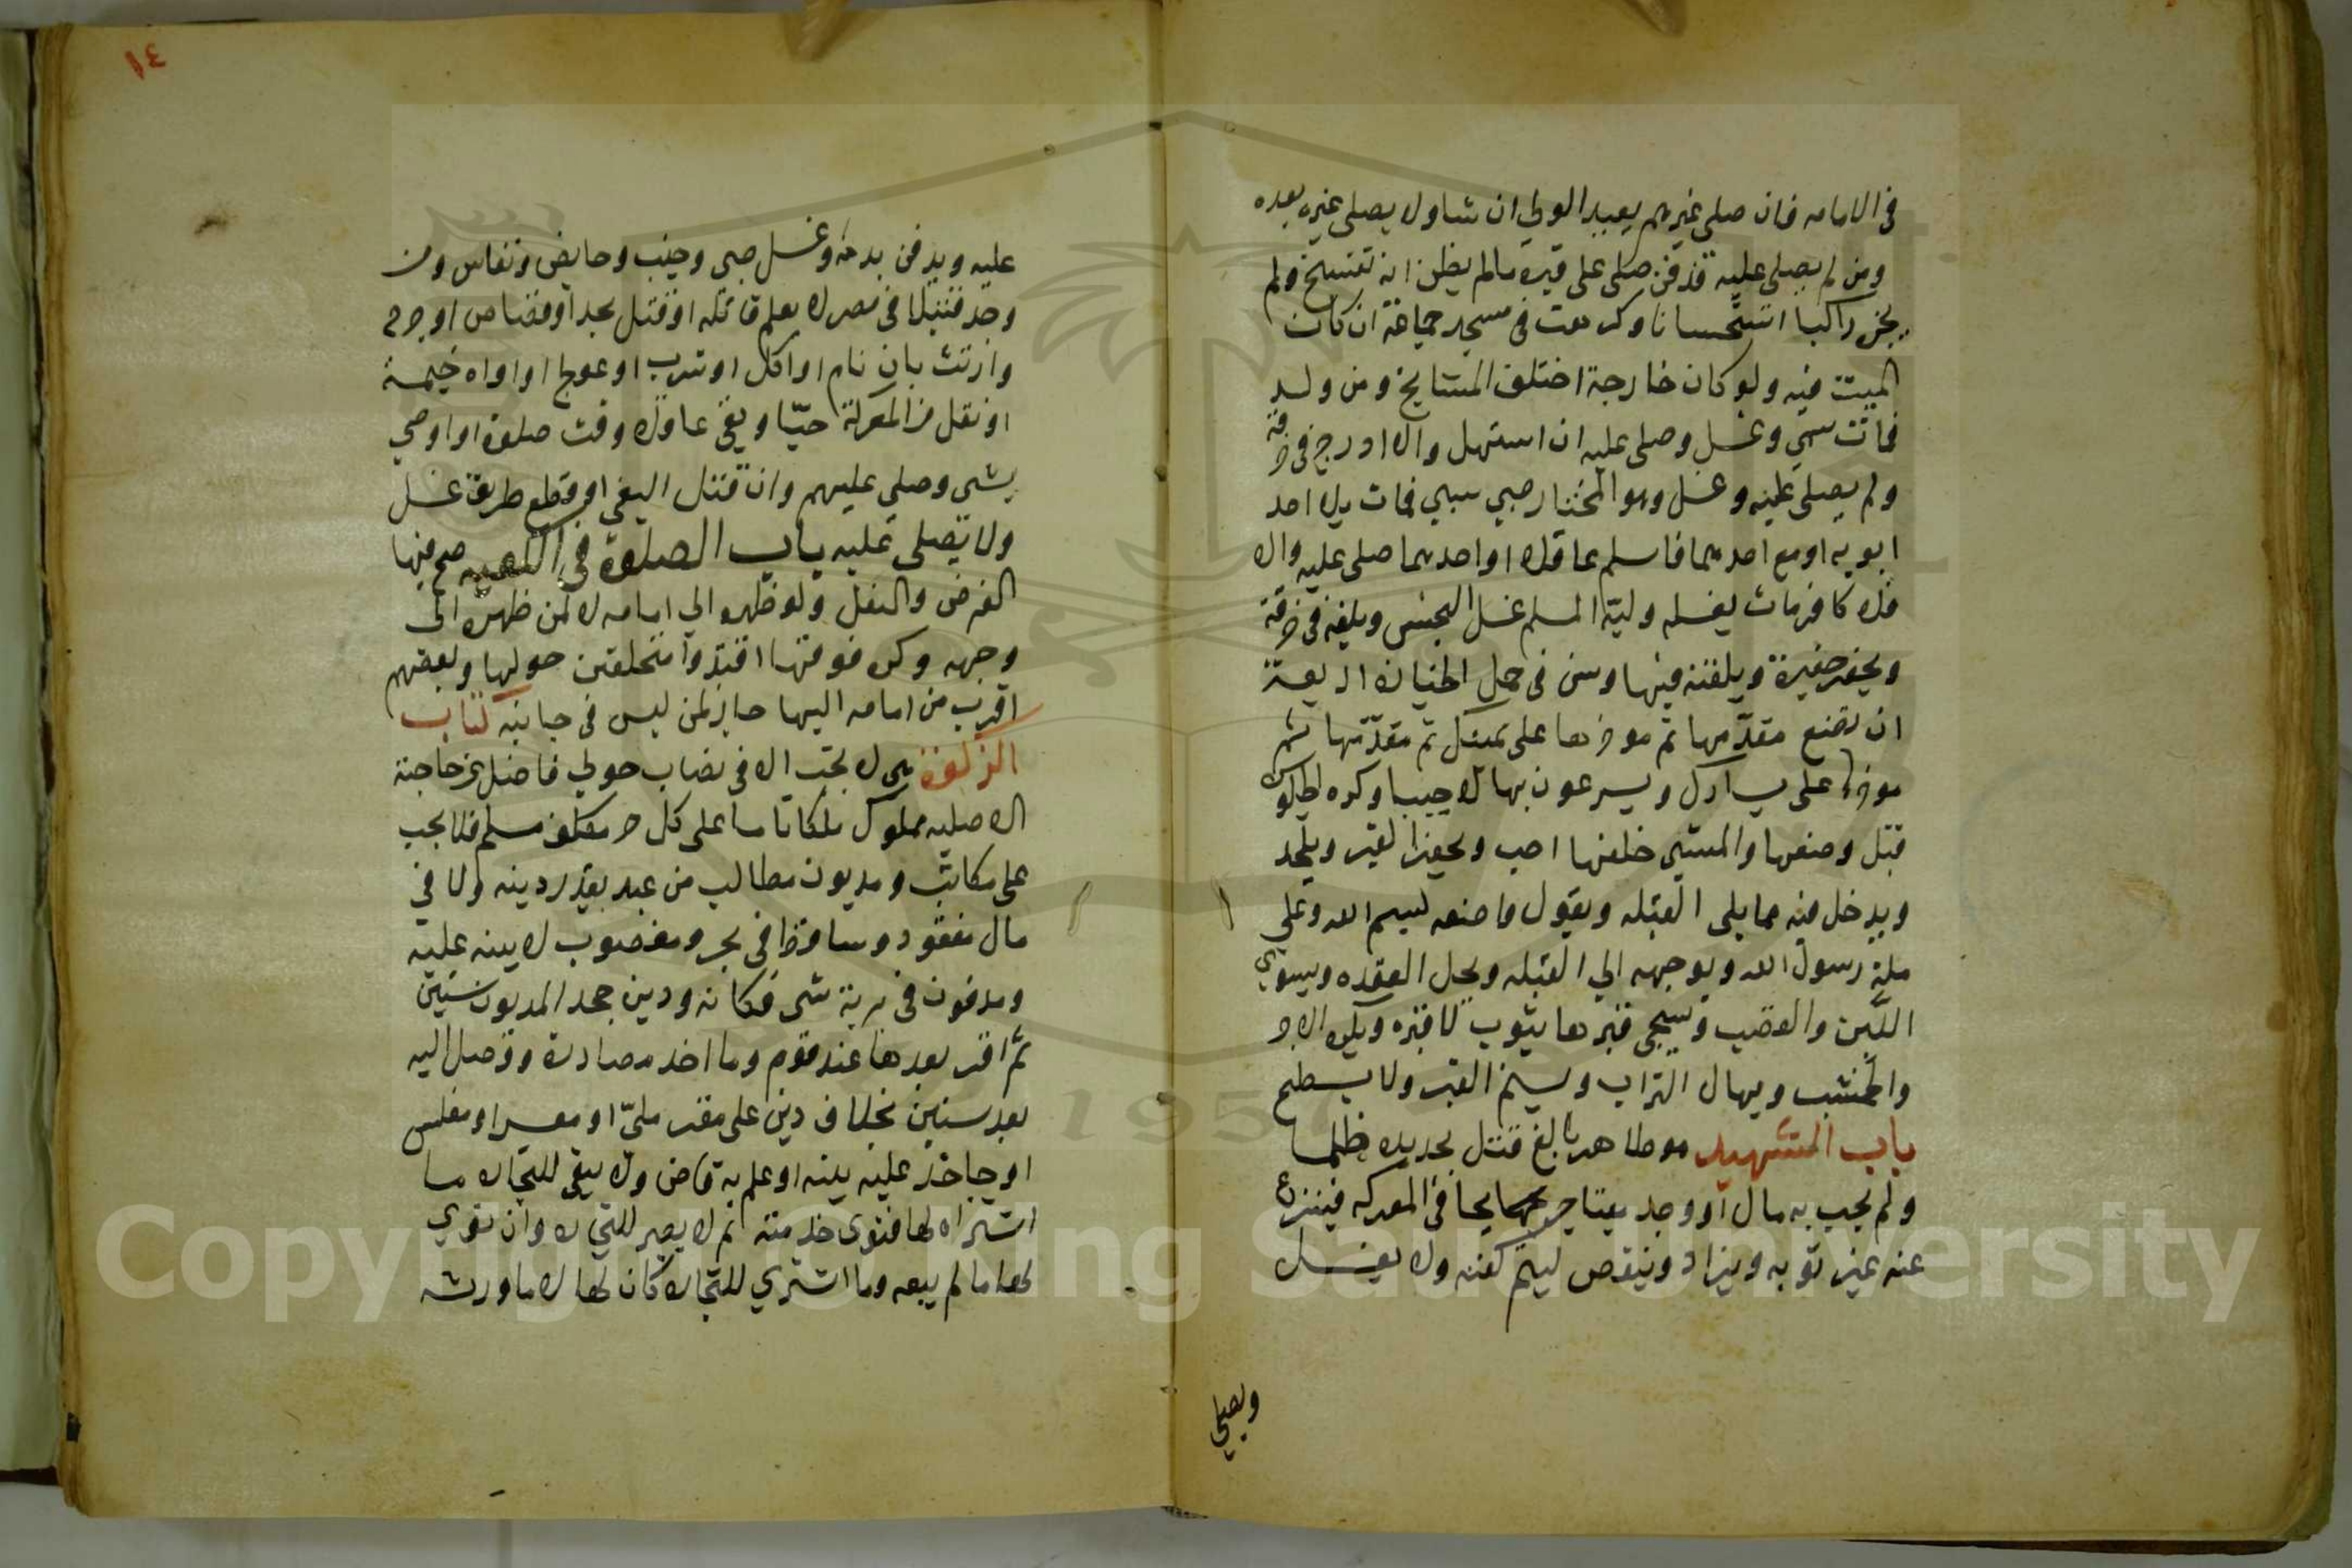 في الامامه فان صلى غيرهم يعيد الولي ان شا ولا يصلي غيره بعده
ومن لم يصلى عليه فدفن صلى على قبره مالم يظن انه تفسخ ولم
يجز راكبا استحسانا وكرهت في مسجد جماعة ان كان
الميت فيه ولو كان خارجة اختلف المشايخ ومن ولد
فمات سمي وغسل وصلى عليه ان استهل والا ادرج في خرقة
ولم يصلى عليه وغسل وهو المختار صبي سبي فمات بلا احد
ابويه او مع احدهما فاسلم عاقلا او احدهما صلى عليه والا
فلا كافر مات يغسله وليه المسلم غسل النجس ويلفه في خرقة
ويحفر حفيرة ويلفنه فيها وسن في حمل الجنازة اربعة
ان تضع مقدمها ثم موخرها على يمينك ثم مقدمها ثم
موخرها على يسارك ويسرعون بها لا خببا وكره الجلوس
قبل وضعها والمشي خلفها احب ويحفر القبر ويلحد
ويدخل فيه مما يلي القبله ويقول واضعه لبسم الله وعلى
ملة رسول الله ويوجهه الي القبله ويحل العقده ويسوي
اللبن والقصب ويسجى قبرها بثوب لا قبره ويكره الاجر
والخشب ويهال التراب ويسنم القبر ولا يسطح
باب الشهيد هو طاهر بالغ قتل بحديده ظلما
ولم يجب به مال او وجد ميتا جريحا في المعركه فينزع
عنه غير ثوبه ويزاد وينقص ليتم كفنه ولا يغسل
ويصلي
١٤
عليه ويدفن بدمه وغسل صبي وجنب وحايض ونفاس ومن
وجد قتيلا في مصر لا يعلم قاتله او قتل بحد او قصاص او جرح
وارتث بان نام او اكل او شرب او عولج او اواه خيمة
او نقل من المعركة حيا وبقي عاقلا وقت صلوة او اوصي
بشي وصلي عليهم وان قتل البغي او قطع طريق غسل
ولا يصلى عليه باب الصلوة في الكعبه صح فيها
الفرض والنفل ولو ظهره الي امامه لا لمن ظهره الى
وجهه وكره فوقها اقتدوا متحلقين حولها وبعضهم
اقرب من امامه اليها جاز لمن ليس في جانبه كتاب
الزكوة هي لا تجب الا في نصاب حولي فاضل عن حاجته
الاصليه مملوك ملكا تاما على كل حر مكلف مسلم فلا يجب
على مكاتب ومديون مطالب من عبد بقدر دينه ولا في
مال مفقود وساقط في بحر ومغصوب لا بينه عليه
ومدفون في برية نسى مكانه ودين جحد المديون سنين
ثم اقر بعدها عند قوم وما اخد مصادرة ووصل اليه
بعد سنين بخلاف دين على مقر مليّ او معسر او مفلس
او جاحد عليه بينه او علم به قاض ولا يبقي للتجاره ما
اشتراه لها فنوى خدمته ثم لا يصير للتجاره وان نوي
لها ما لم يبعه وما اشتري للتجارة كان لها لا ما ورثه
Copyright © King Saud University
1957